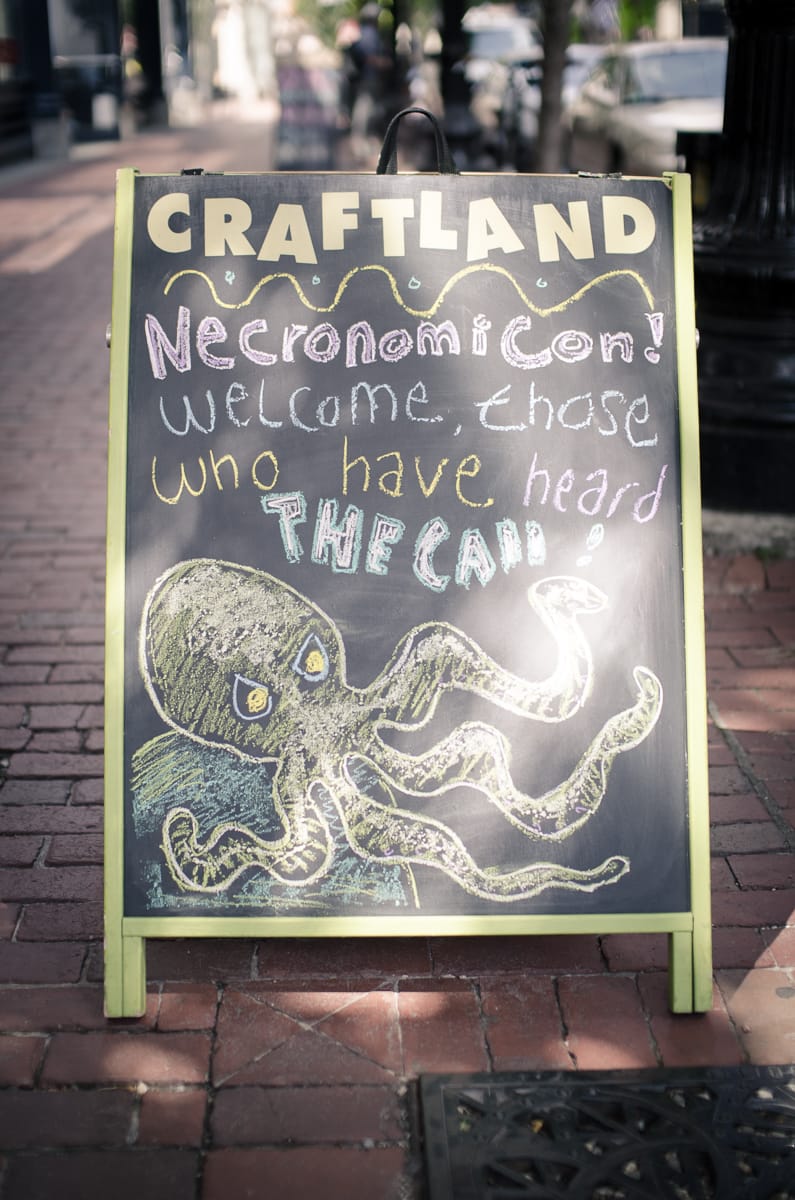 CRAFTLAND
Necronomicon!
Welcome, those
who have heard
THE CAll!